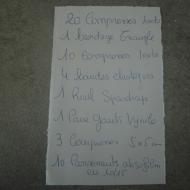 20 Compresses
1 bandage Triangle
10 compresses
4 bandes élastiques
1 Rool Sparadrap
1 Paire Gants Vynile
3 Compresses 5x5cm
10 Pansements
ou 10x15